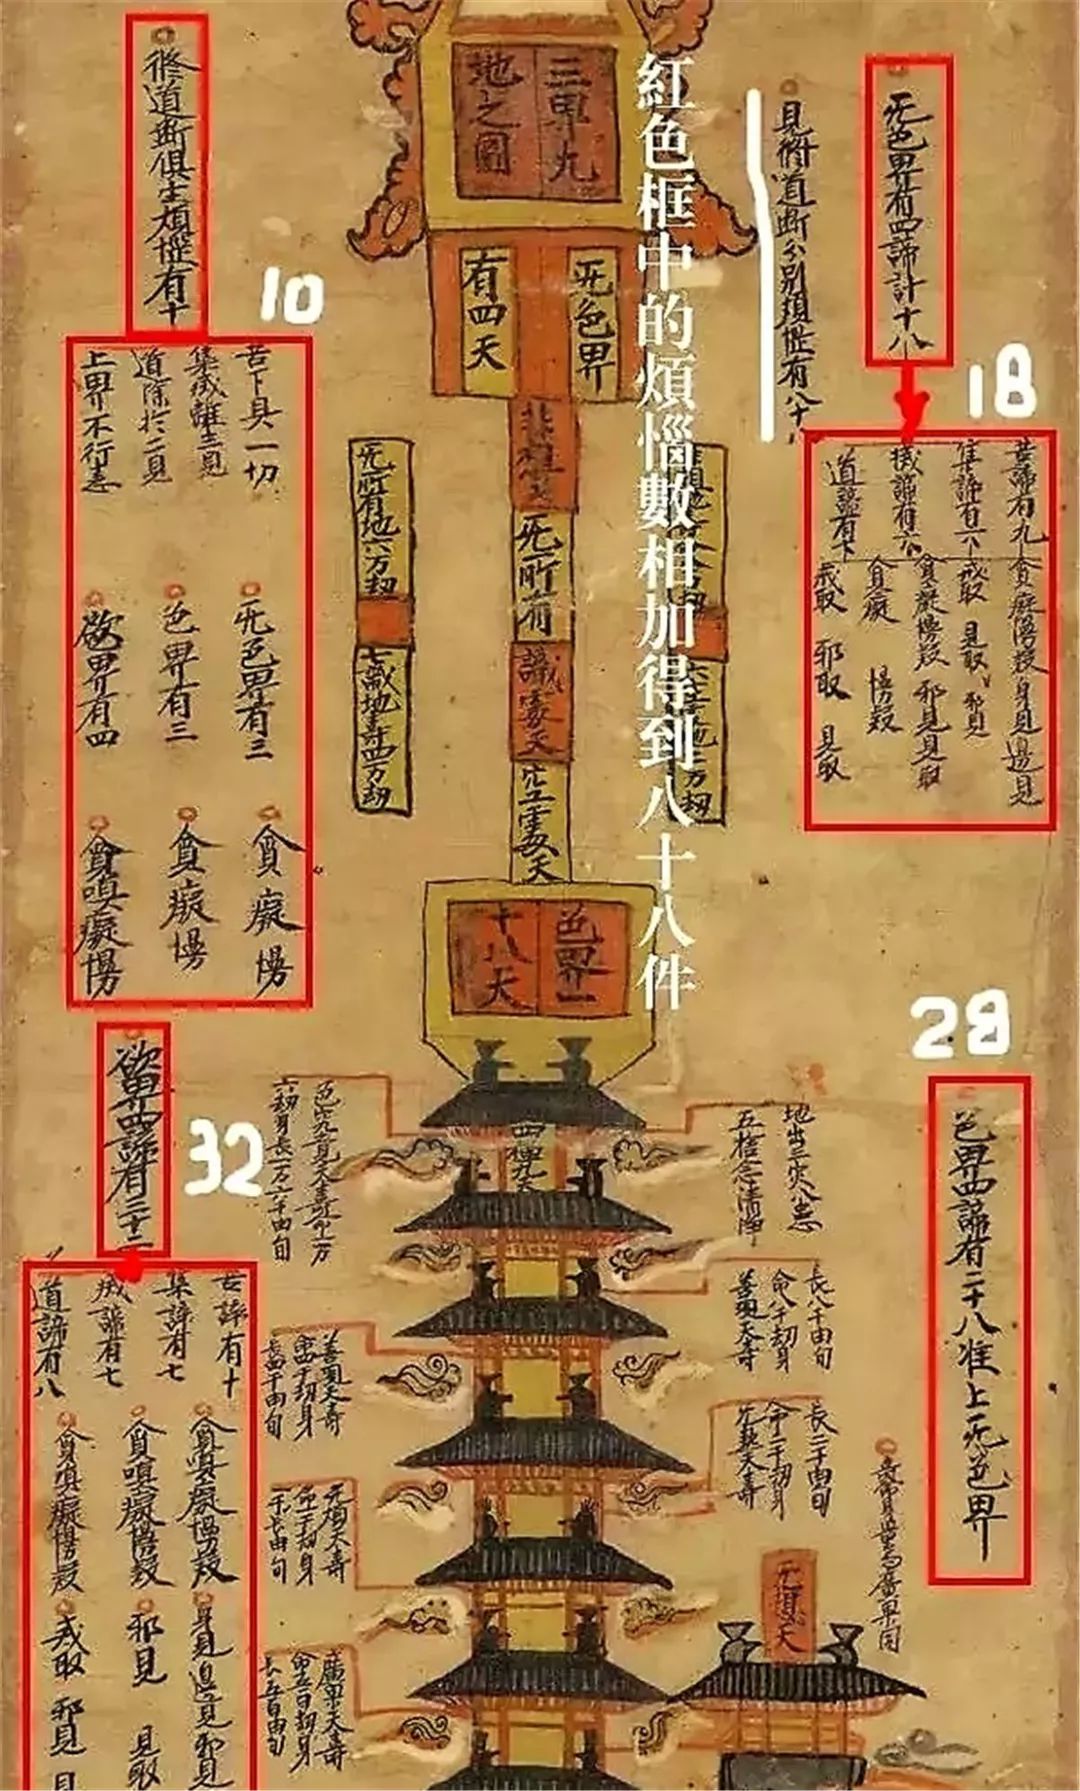 三界九
地之圖
紅色框中的煩惱數相加得到八十八件
无色界有四諦計十八
18
苦諦有九
集諦有六
滅諦有六
貪癡慢疑身見邊見
戒取 見取 邪見
貪癡慢疑邪見見取
貪癡 慢疑
戒取 邪取 見取
見修道断分別煩惱有八十八
无色界
有四天
无所有
識處天
空處天
无所有地六万劫
識地壽四万劫
修道断俱生煩惱有十
10
苦下具一切
集滅離三見
道除於二見
上界不行恚
无色界有三
色界有三
欲界有四
貪癡慢
貪癡慢
貪嗔癡慢
色界
十八天
28
色界四諦有二十八准上无色界
欲界四諦有三十二
32
苦諦有十
集諦有七
滅諦有七
道諦有八
貪嗔癡慢疑
貪嗔癡慢疑
貪嗔癡慢疑
身見邊見邪見
邪見 見取
戒取 邪見 見
四禪九天
色究竟天壽万
六劫身長一万六千由旬
地出三灾八患
五捨念清淨
長八千由旬
命八千劫身
善現天壽
長二千由旬
命二千劫身
无熱天壽
无煩天壽
命千劫身
廣果天壽
命五百劫身
長五百由旬
无想天